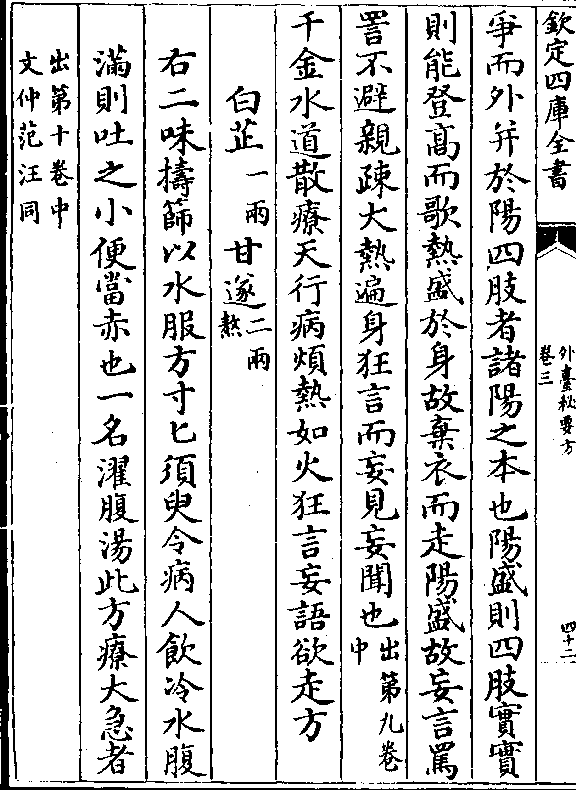 欽定四庫全書
外臺秘要方
卷三
四十二
爭而外并於陽四肢者諸陽之本也陽盛則四肢實實
則能登髙而歌熱盛於身故棄衣而走陽盛故妄言罵
詈不避親疎大熱遍身狂言而妄見妄聞也出第九卷中
千金水道散療天行病煩熱如火狂言妄語欲走方
白芷一兩甘遂二兩熬
右二味擣篩以水服方寸匕須臾令病人飲冷水腹
滿則吐之小便當赤也一名濯腹湯此方療大急者
出第十卷中
文仲范汪同